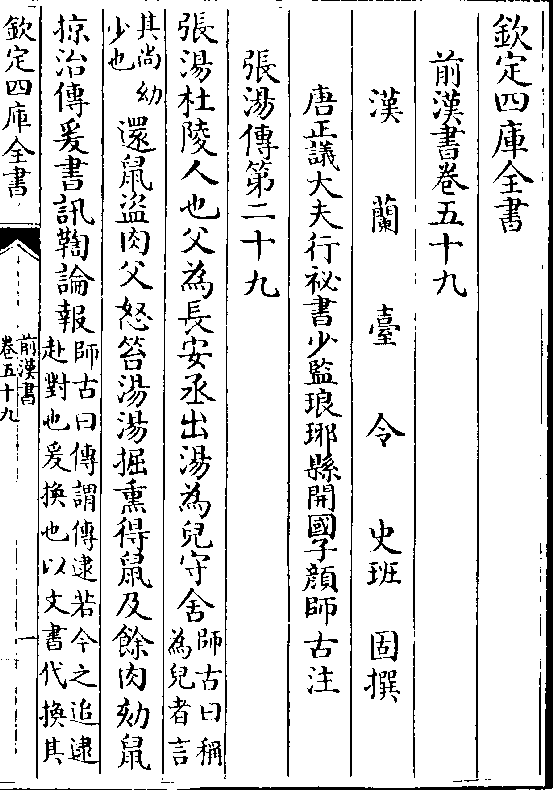 欽定四庫全書
前漢書卷五十九
漢蘭臺令史班固撰
唐正議大夫行祕書少監琅琊縣開國子顏師古注
張湯傳第二十九
張湯杜陵人也父為長安丞出湯為兒守舍師古曰稱
為兒者言
其尚幼
少也還鼠盜肉父怒笞湯湯掘熏得鼠及餘肉劾鼠
掠治傳爰書訊鞫論報師古曰傳謂傳逮若今之追逮
赴對也爰換也以文書代換其
欽定四庫全書
前漢書
卷五十九
一